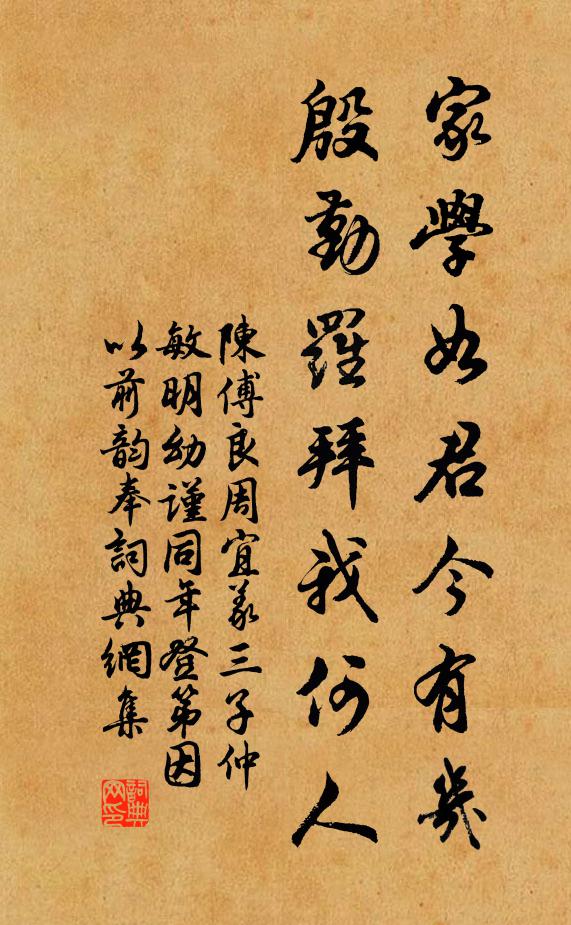 家學如君今有幾
殷勤羅拜我何人
陳傅良周宜義三子仲
敏明幼謹同年登第因
以前韵奉詞典網集
詞典网印